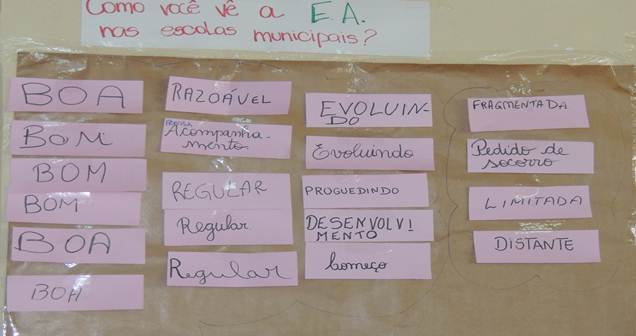 Como você vê a E.A.
nas escolas municipais?
BOA
BOM
BOM
BOM
BOA
BOA
RAZOÁVEL
PRECISA
Acompanha-
mento
REGULAR
Regular
Regular
EVOLUIN-
DO
Evoluindo
PROGUEDINDO
DESENVOLVI
MENTO
Começo
FRAGMENTADA
Pedido de
socorro
LIMITADA
DISTANTE